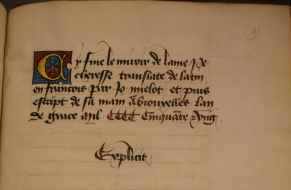 Cy fine le miroir de lame pe
cheresse translate de latin
en francois par Jo mielot et puis
escript de sa main a brouxelles lan
de grace mil CCCC Cinquante Vng
Explicit